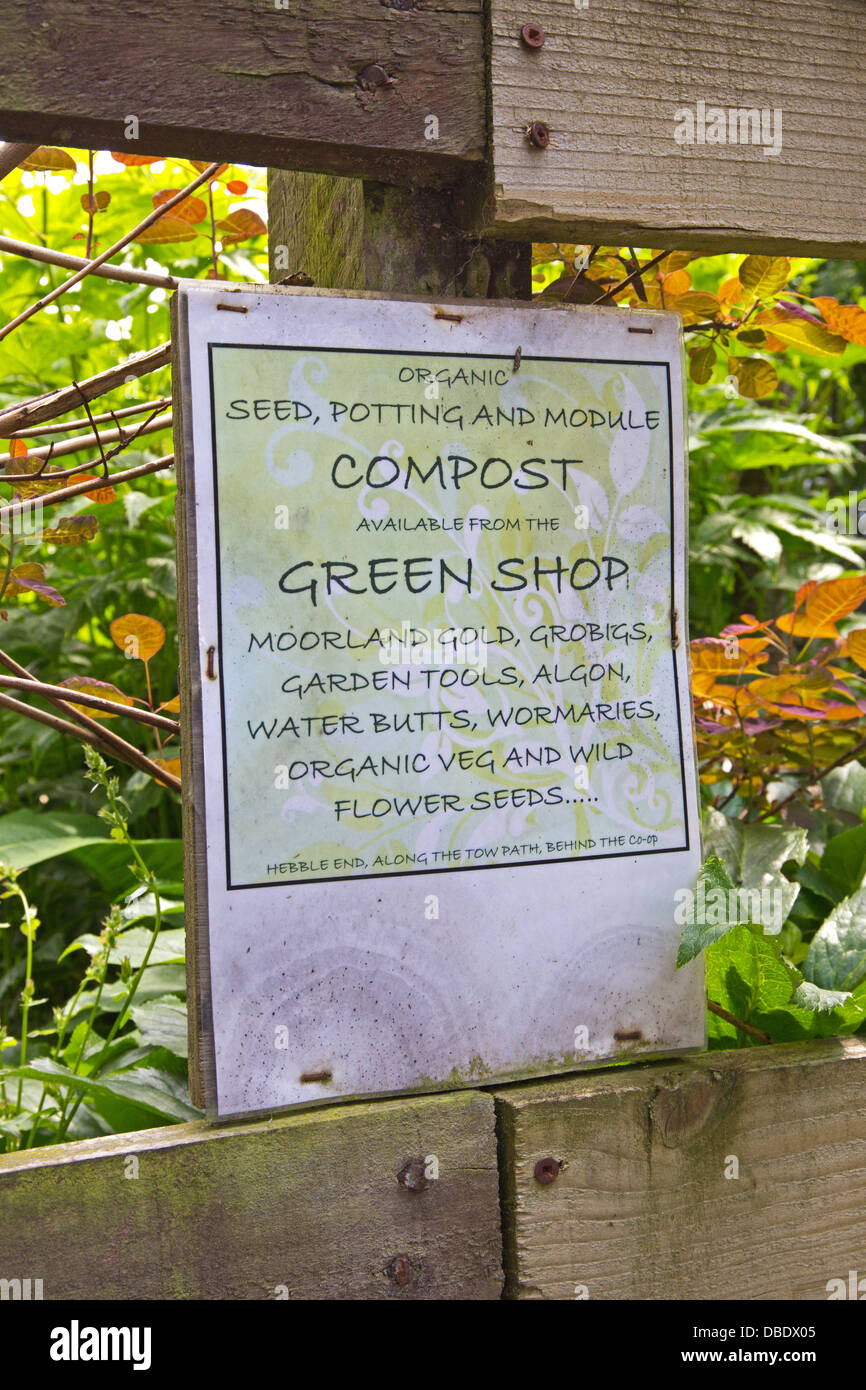 ORGANIC
SEED, POTTING AND MODULE
COMPOST
AVAILABLE FROM THE
GREEN SHOP
MOORLAND GOLD, GROBIGS,
GARDEN TOOLS, ALGON,
WATER BUTTS, WORMARIES,
ORGANIC VEG AND WILD
FLOWER SEEDS.....
HEBBLE END, ALONG THE TOW PATH, BEHIND THE CO-OP
alamy
alamy
Image ID: DBDX05
www.alamy.com